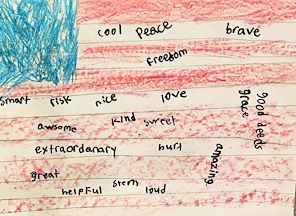 cool peace brave
freedom
smart risk nice love
grace
good deeds
awsome kind sweet
extraordanary hurt
amazing
great
helpful stern loud